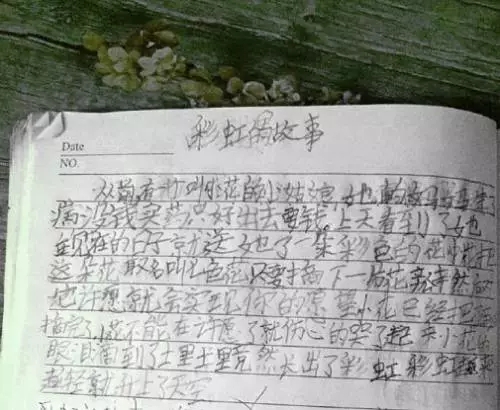 彩虹的故事
Date
NO.
从前有一个叫小花的小姑娘她的妈妈生
病没钱买药只好出去要钱上天看到了她
现在的日子就送她了一朵彩色的花小花把
这朵花取名叫七色花只要摘下一片花
许愿就会实现你的愿望小花已经把花
摘完了小花不能在许愿了就伤心的哭了起来小花的
眼泪留到了土里土里竟然长出了彩虹彩虹
轻轻就升上了天空